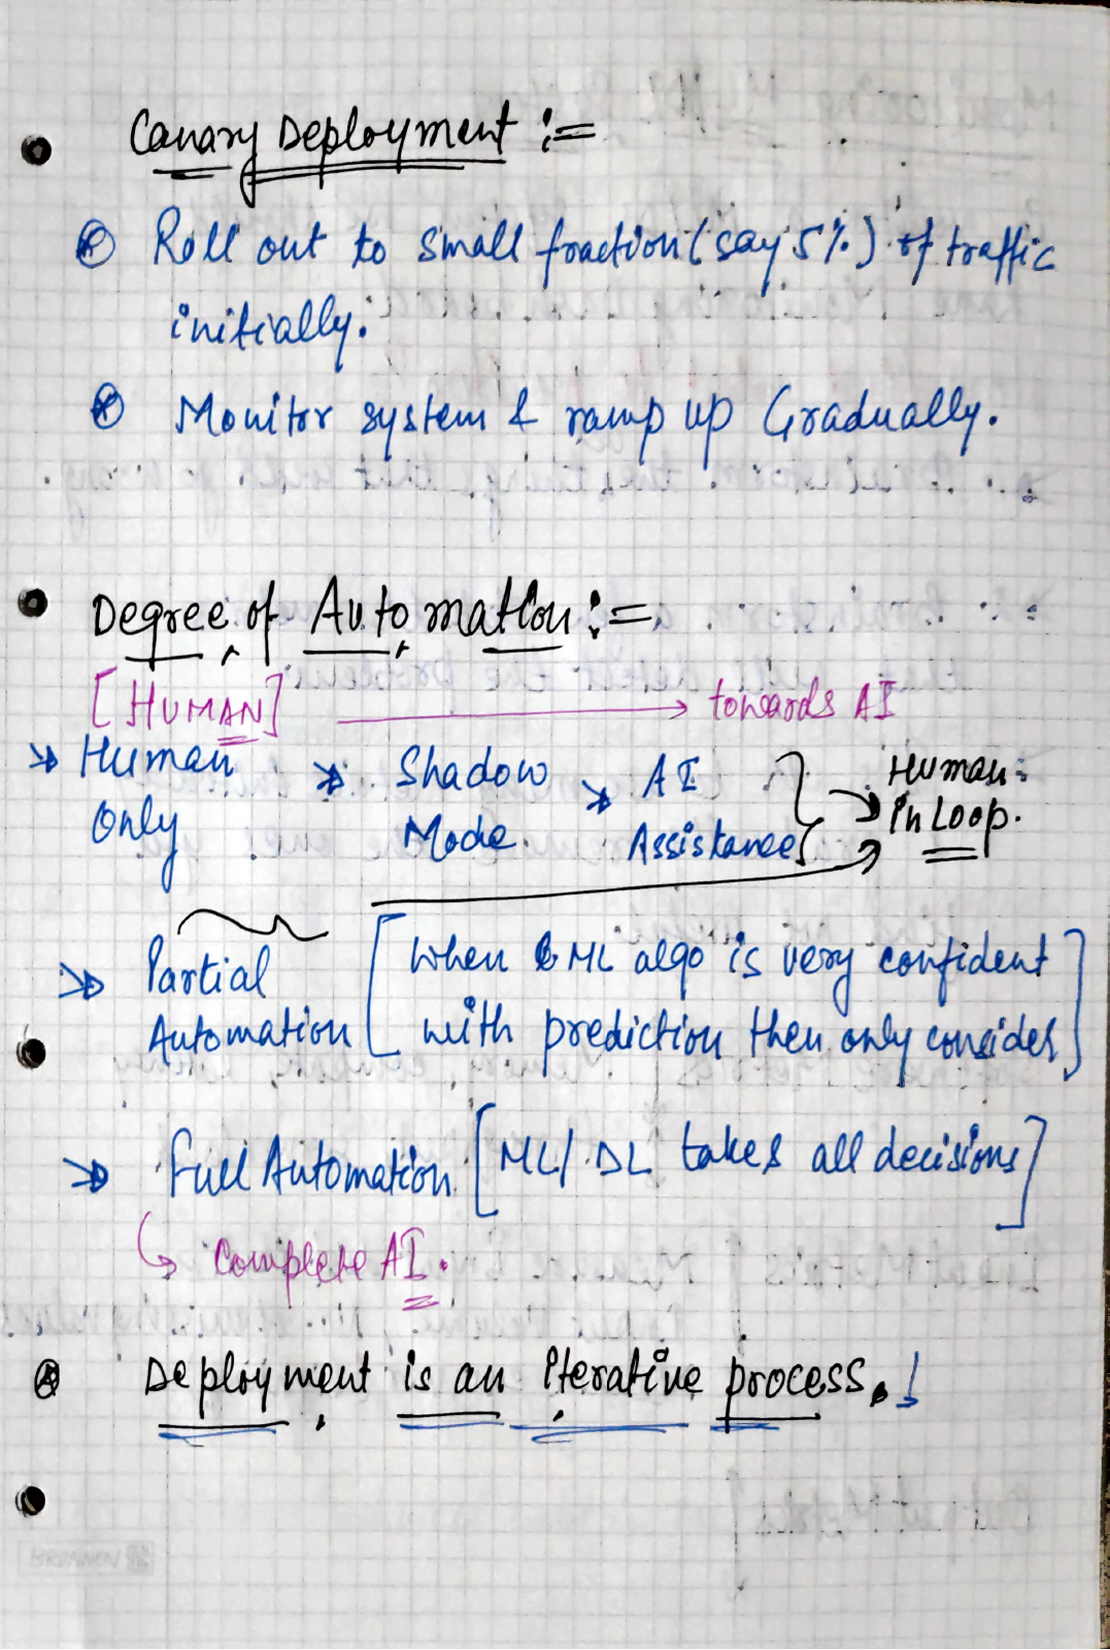 Canary Deployment :=
Roll out to small fraction (say 5%) of traffic
initially.
Monitor system & ramp up Gradually.
Degree of Automation :=
[HUMAN] → towards AI
Human Only
Shadow Mode
AI Assistance
Human in Loop.
Partial Automation
[when ML algo is very confident
with prediction then only consider]
Full Automation [ML/DL takes all decisions]
Complete AI.
Deployment is an iterative process.